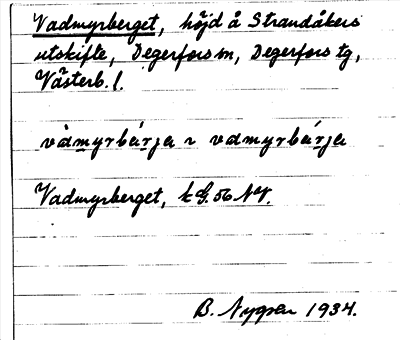 Vadmyrberget, höjd å Strandåkers
utskifte, Degerfors sn, Degerfors tg,
Västerb. l.
vàmyrbárja ~ vadmyrbárja
Vadmyrberget, k G. 56 NV.
B. Nygren 1934.